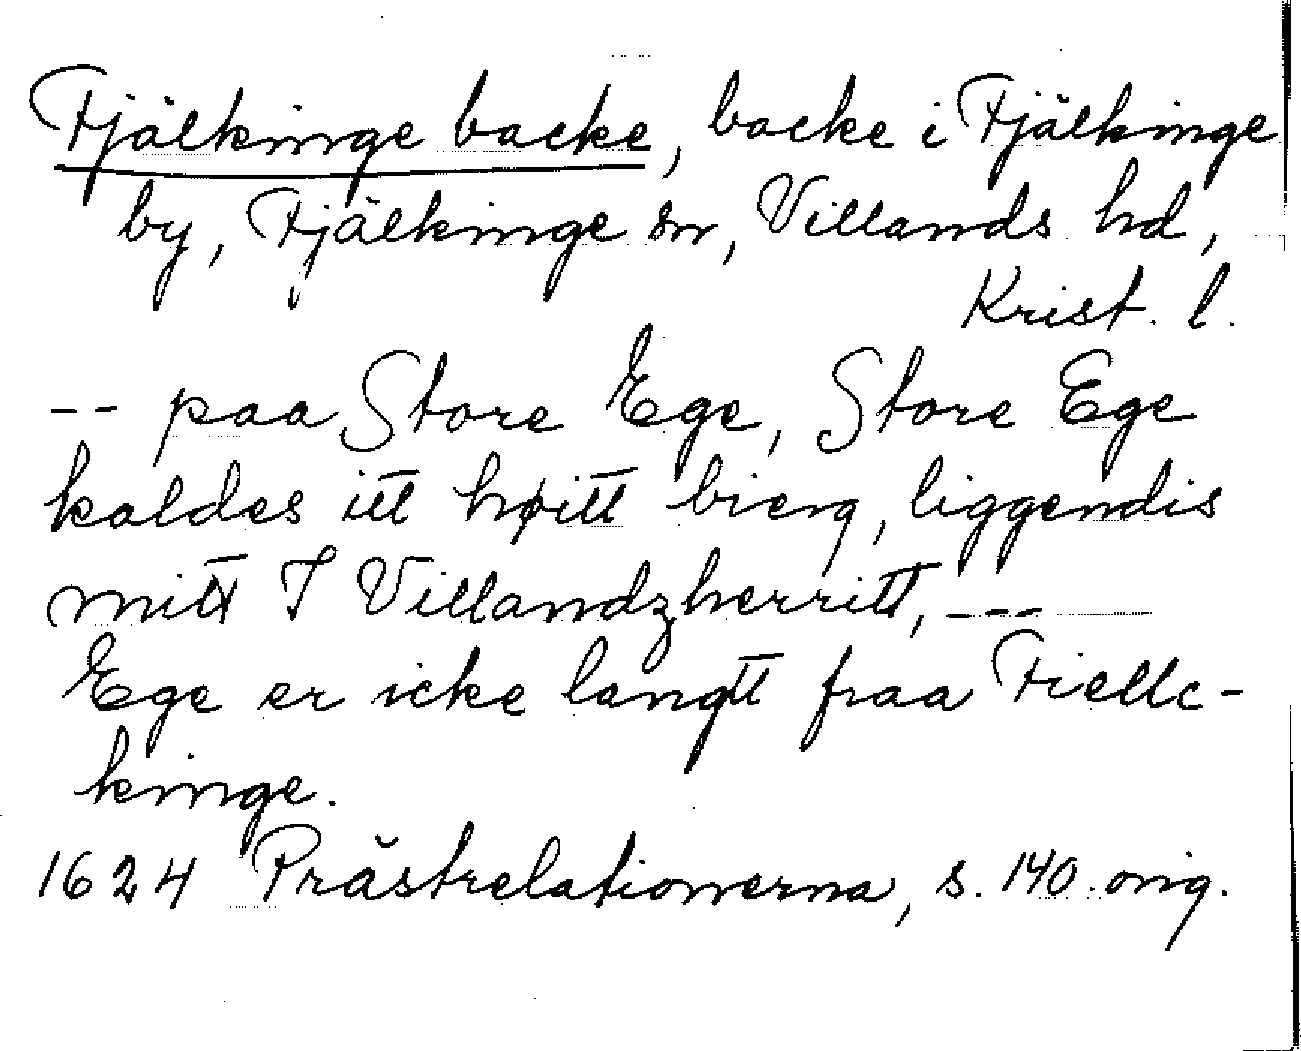 Fjälkinge backe, backe i Fjälkinge
by, Fjälkinge sn, Villands hd,
Krist. l.
-- paa Store Ege, Store Ege
kaldes itt høitt bierg, liggendis
mitt I Villandzherritt, ---
Ege er icke langtt fraa Fiellc-
kinge.
1624 Prästrelationerna, s. 140 orig.